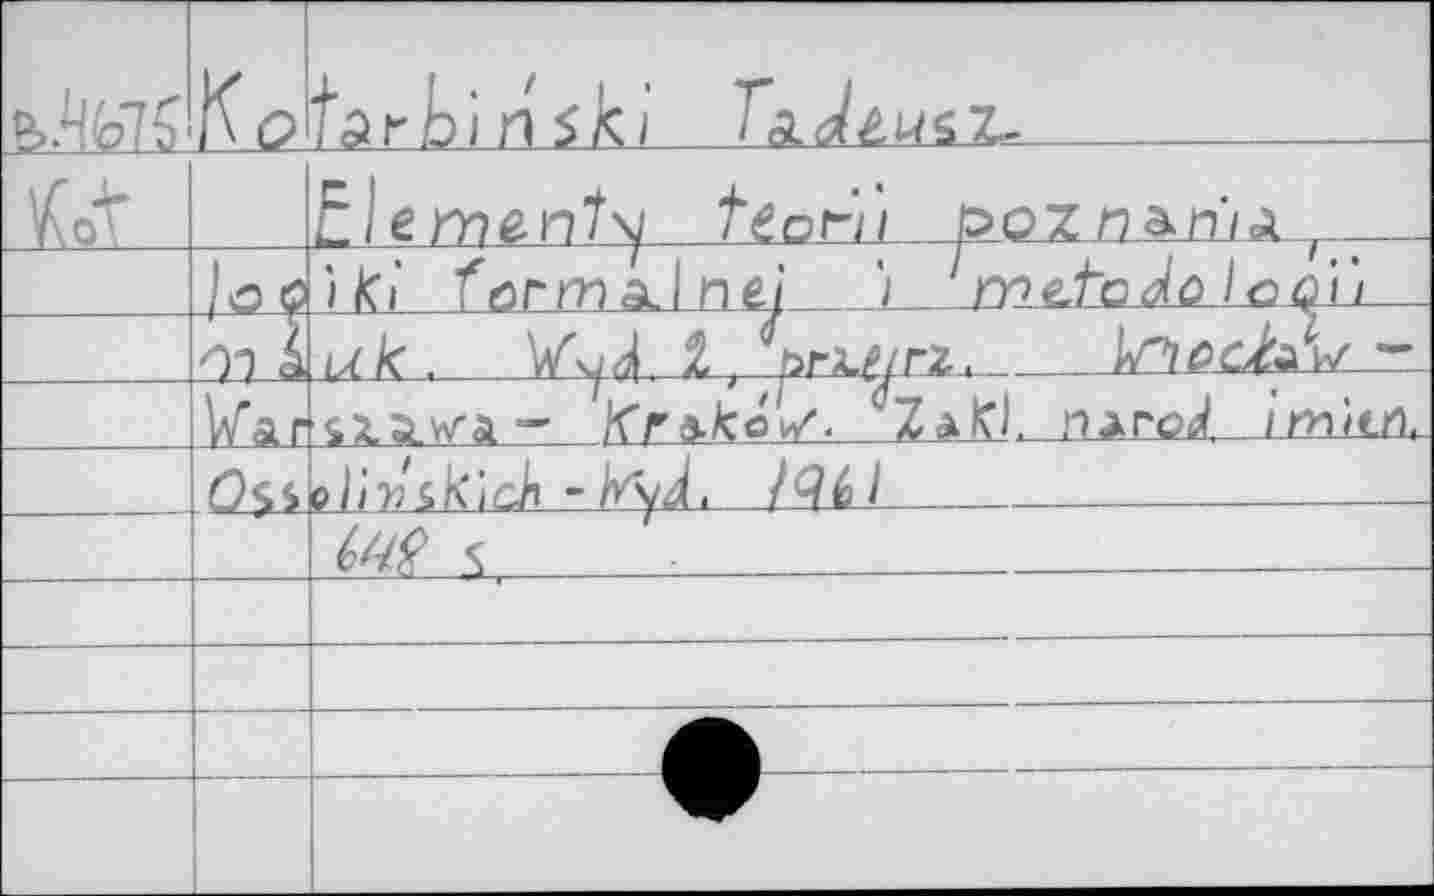 B.4675 Kotarbiński Tadeusz
Kot Elementy teorii poznania,
logiki formalnej i metodologii
nauk. Wyd. 2, przejrz. Wrocław -
Warszawa - Kraków. Zakł. narod. imien.
Ossolińskich - Wyd. 1961
648 s.